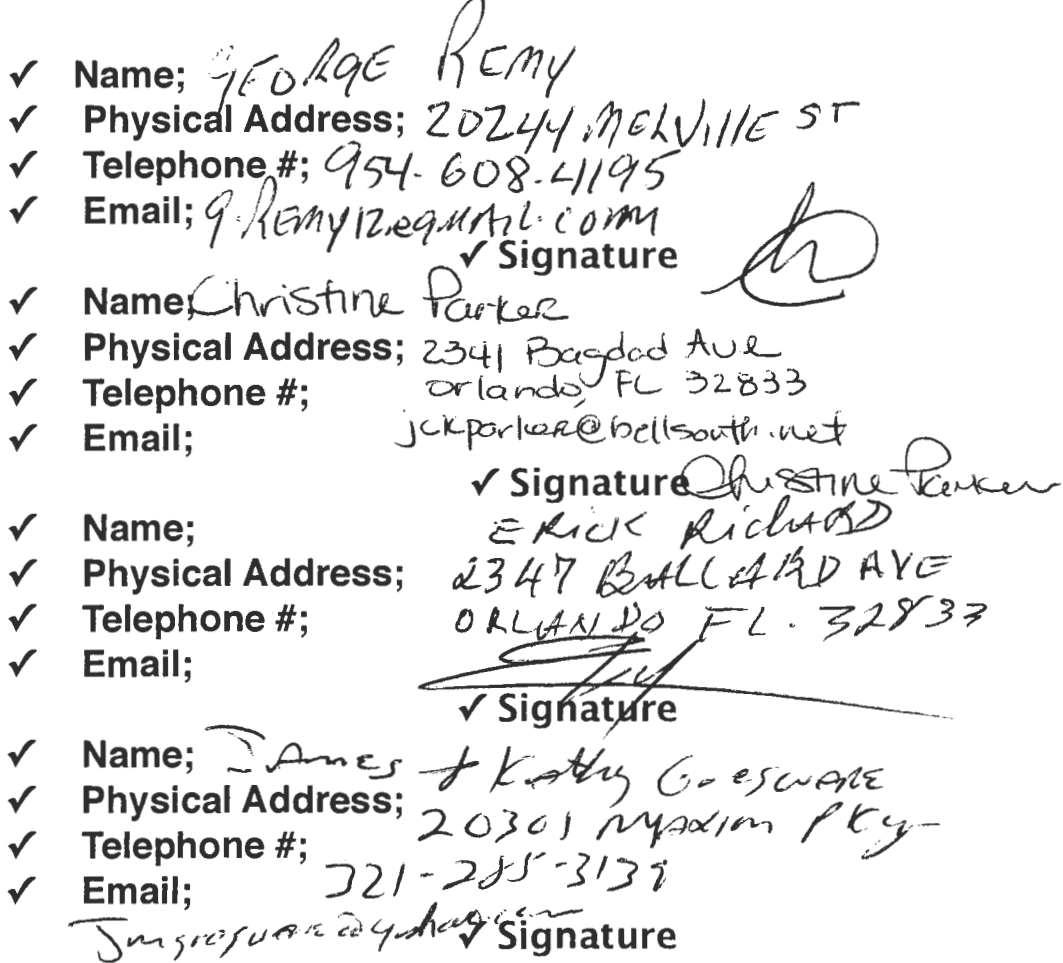 ✓ Name; GEORGE REMY
✓ Physical Address; 20244 MELVILLE ST
✓ Telephone #; 954-608-4195
✓ Email; g.REMY12@gMAIL.COM
✓ Signature
✓ Name; Christine Parker
✓ Physical Address; 2341 Bagdad Ave
✓ Telephone #; Orlando, FL 32833
✓ Email; jckparker@bellsouth.net
✓ Signature Christine Parker
✓ Name; ERICK RICHARD
✓ Physical Address; 2347 BALLARD AVE
✓ Telephone #; ORLANDO FL. 32833
✓ Email;
✓ Signature
✓ Name; JAMES + Kathy
✓ Physical Address; 20301 MAXIM PKy
✓ Telephone #;
✓ Email; 321-285-3139
✓ Signature